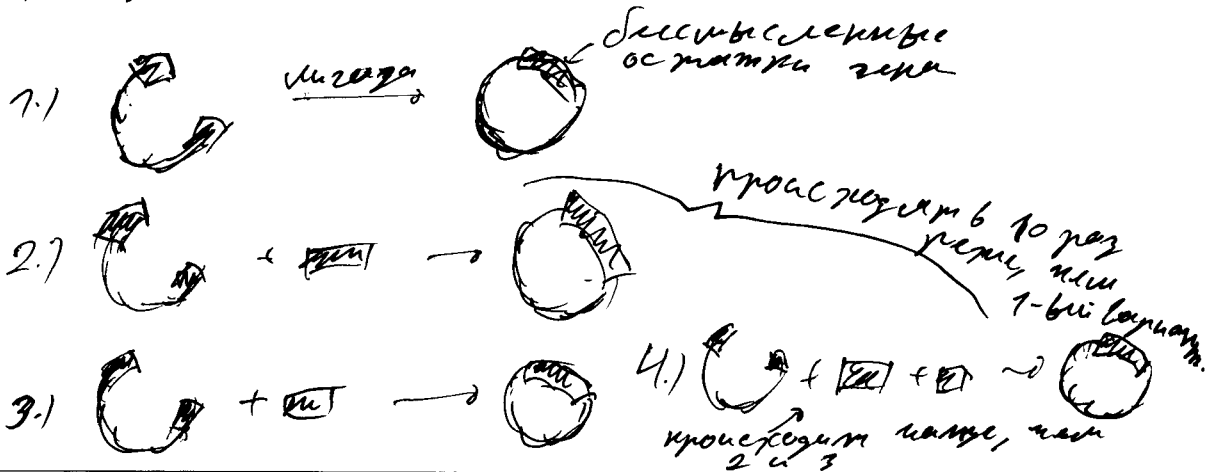 1.)
лигаза
бессмысленные
остатки гена
2.)
+
происходят в 10 раз
реже, чем
1-ый вариант.
3.)
+
4.)
+ +
происходит чаще, чем
2 и 3